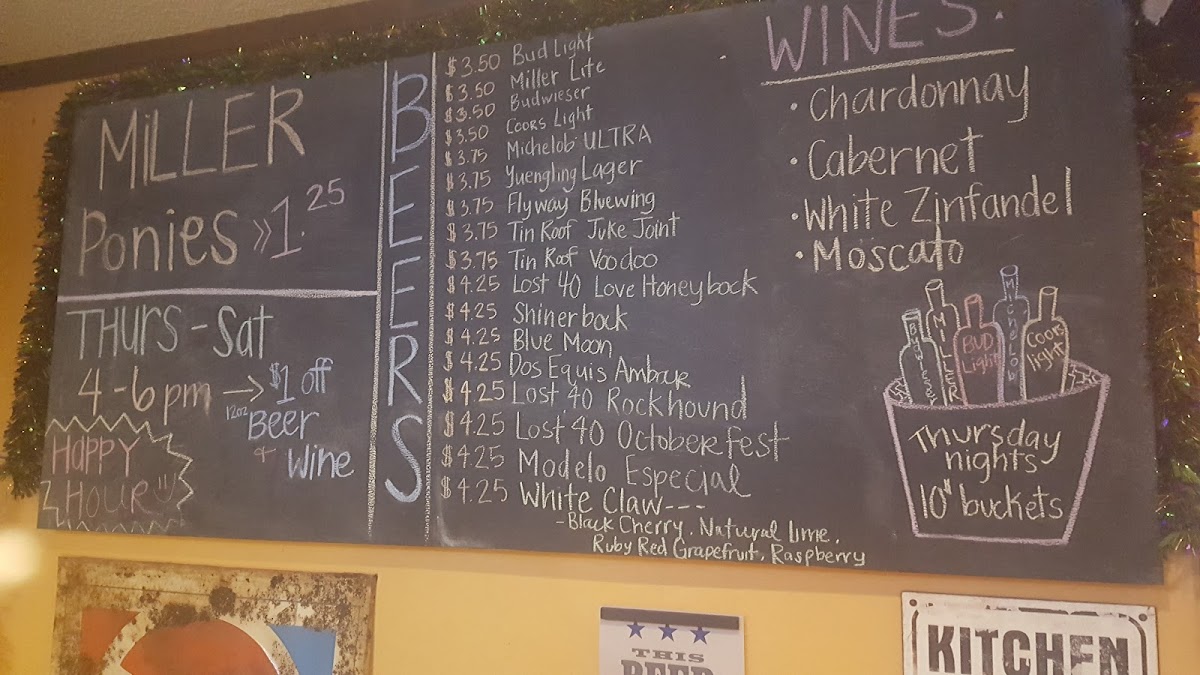 MILLER
Ponies » 1.25
THURS - Sat
4-6pm → $1 off
12oz Beer
+ Wine
HAPPY
HOUR
BEERS
$3.50 Bud Light
$3.50 Miller Lite
$3.50 Budwieser
$3.50 Coors Light
$3.75 Michelob ULTRA
$3.75 Yuengling Lager
$3.75 Flyway Bluewing
$3.75 Tin Roof Juke Joint
$3.75 Tin Roof Voodoo
$4.25 Lost 40 Love Honeybock
$4.25 Shinerbock
$4.25 Blue Moon
$4.25 Dos Equis Ambar
$4.25 Lost 40 Rockhound
$4.25 Lost 40 Octoberfest
$4.25 Modelo Especial
$4.25 White Claw---
-Black Cherry, Natural Lime,
Ruby Red Grapefruit, Raspberry
WINES.
• Chardonnay
• Cabernet
• White Zinfandel
• Moscato
MILLER
BUD
Light
Coors
light
Thursday
nights
10" buckets
THIS
BEER
KITCHEN